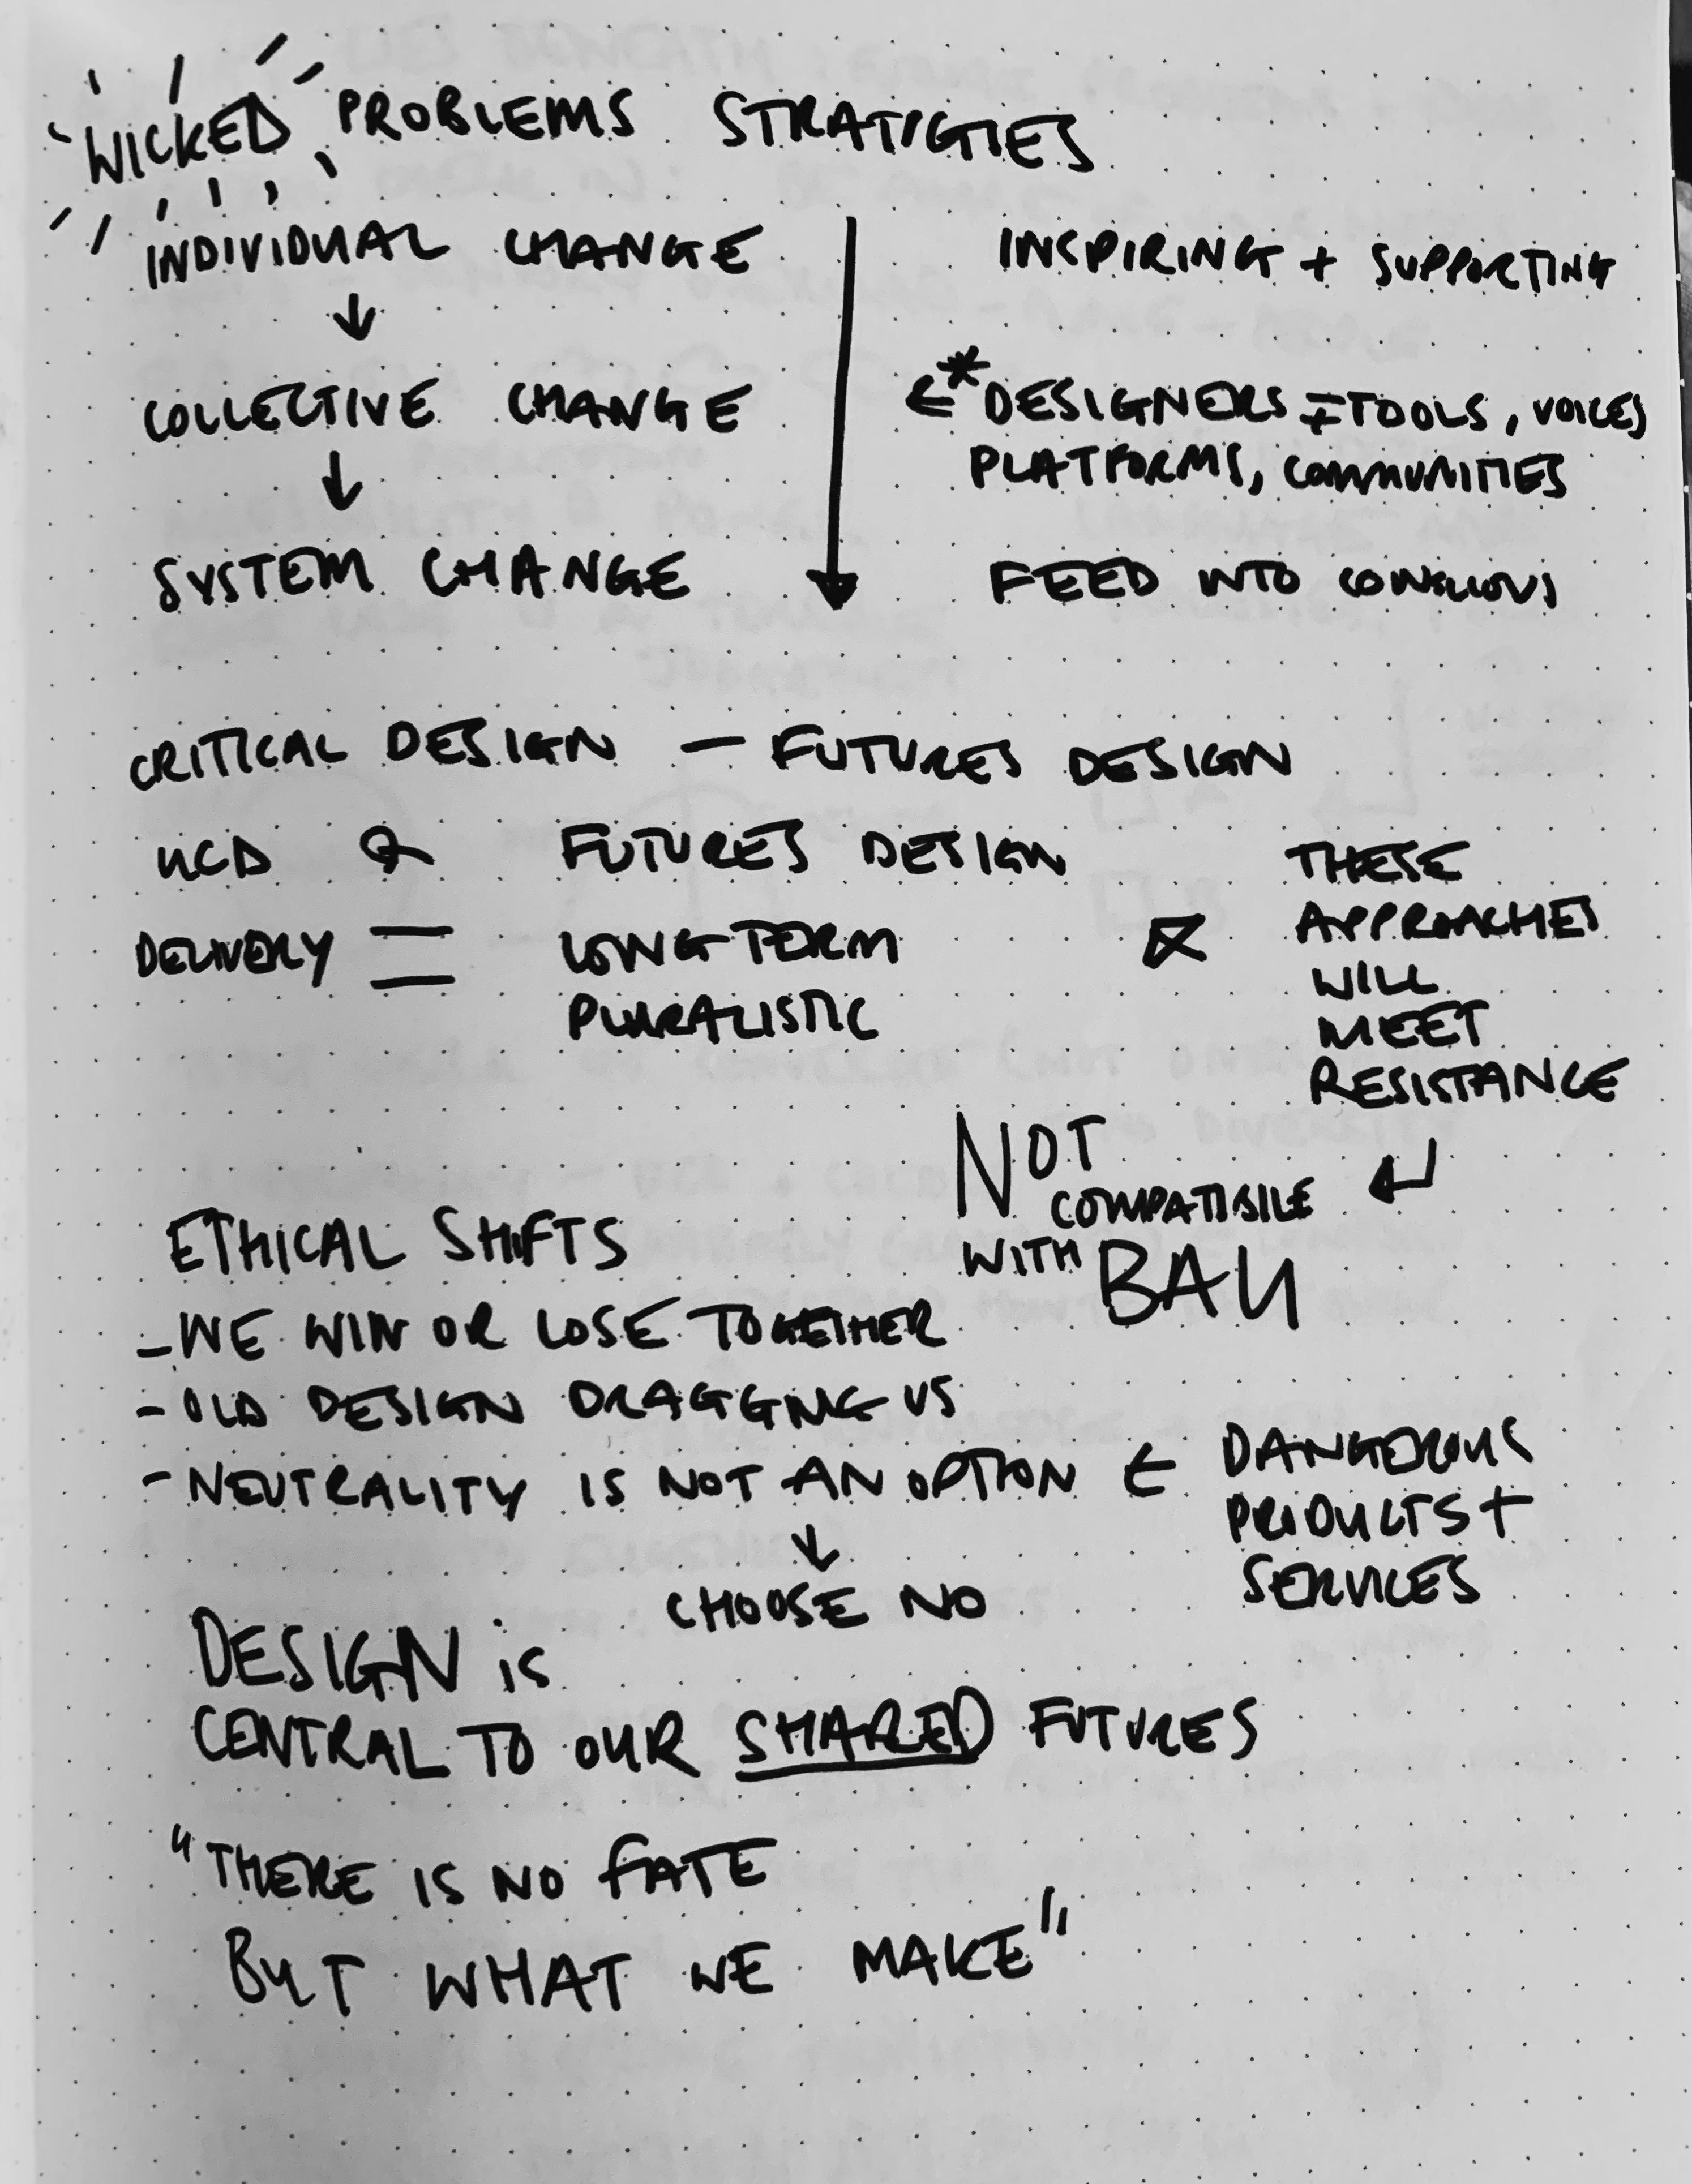 WICKED PROBLEMS STRATIGIES
INDIVIDUAL CHANGE
↓
COLLECTIVE CHANGE
↓
SYSTEM CHANGE
INSPIRING + SUPPORTING
← * DESIGNERS TOOLS, VOICES
PLATFORMS, COMMUNITIES
FEED INTO
CRITICAL DESIGN - FUTURES DESIGN
UCD & FUTURES DESIGN
DELIVERY = LONG TERM
PLURALISTIC
THESE
APPROACHES
WILL
MEET
RESISTANCE
NOT
COMPATIBILE
WITH BAU
ETHICAL SHIFTS
- WE WIN OR LOSE TOGETHER
- OLD DESIGN DRAGGING US
- NEUTRALITY IS NOT AN OPTION ← DANGEROUS
PRODUCTS +
SERVICES
↓
CHOOSE NO
DESIGN is
CENTRAL TO OUR SHARED FUTURES
"THERE IS NO FATE
BUT WHAT WE MAKE"